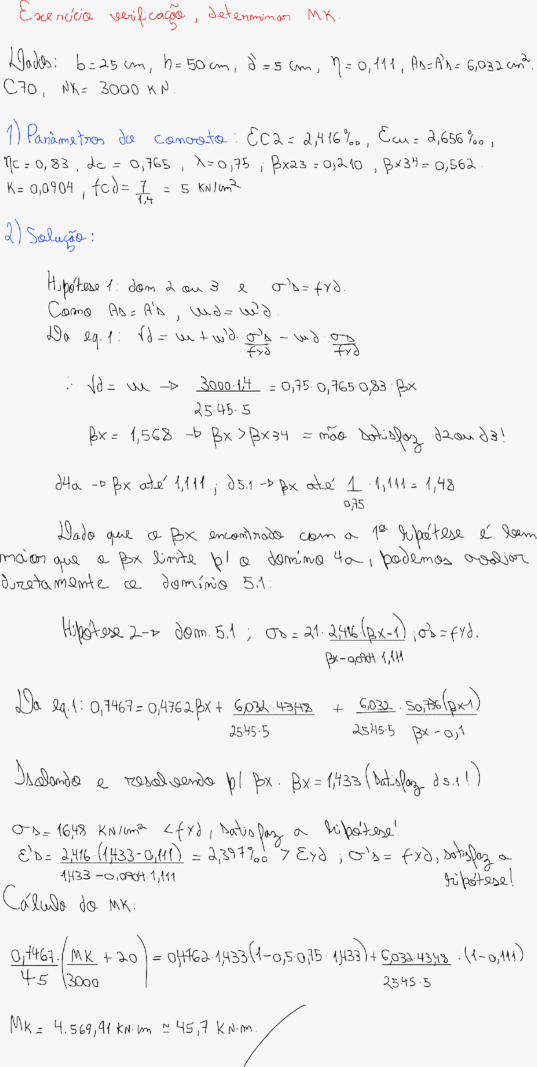 Exercício verificação, determinar MK.
Dados: b=25 cm, h=50 cm, d'=5 cm, η=0,111, As=A's=6,032 cm².
C70, NK= 3000 KN.
1) Parâmetros do concreto: Ec2=2,416‰, Ecu=2,656‰,
ηc=0,83, αc=0,765, λ=0,75; βx23=0,210, βx34=0,562.
K=0,0904, fcd= 7/1,4 = 5 KN/cm²
2) Solução:
Hipótese 1: dom. 2 ou 3 e σ's=fyd.
Como As=A's, ωd=ω'd.
Da eq.1: νd= m+ω'd. σ's/fyd - ωd σs/fyd
∴ νd= m → 3000.1,4/25.45.5 =0,75.0,765.0,83.βx
βx= 1,568 → βx>βx34 = não satisfaz d2 ou d3!
d4a → βx até 1,111; d5.1 → βx até 1/0,75 .1,111=1,48
Dado que o βx encontrado com a 1ª hipótese é bem
maior que o βx limite p/ o domínio 4a, podemos avaliar
diretamente o domínio 5.1:
Hipótese 2 → dom. 5.1; σs=21. 2,416(βx-1)/βx-0,0904.1,111; σ's=fyd.
Da eq.1: 0,7467=0,4762βx + 6,032.43,48/25.45.5 + 6,032/25.45.5 . 50,736(βx-1)/βx-0,1
Isolando e resolvendo p/ βx: βx=1,433 (satisfaz d5.1!)
σs=16,48 KN/cm² <fyd, satisfaz a hipótese!
ε's= 2,416.(1,433-0,111)/1,433-0,0904.1,111 = 2,397‰ > Eyd; σ's=fyd, satisfaz a
hipótese!
Cálculo do MK:
0,7467/45 .(MK/3000 +20) =0,4762.1,433(1-0,5.0,75.1,433)+ 6,032.43,48/25.45.5 .(1-0,111)
MK= 4.569,91 KN.cm ≃ 45,7 KN.m.